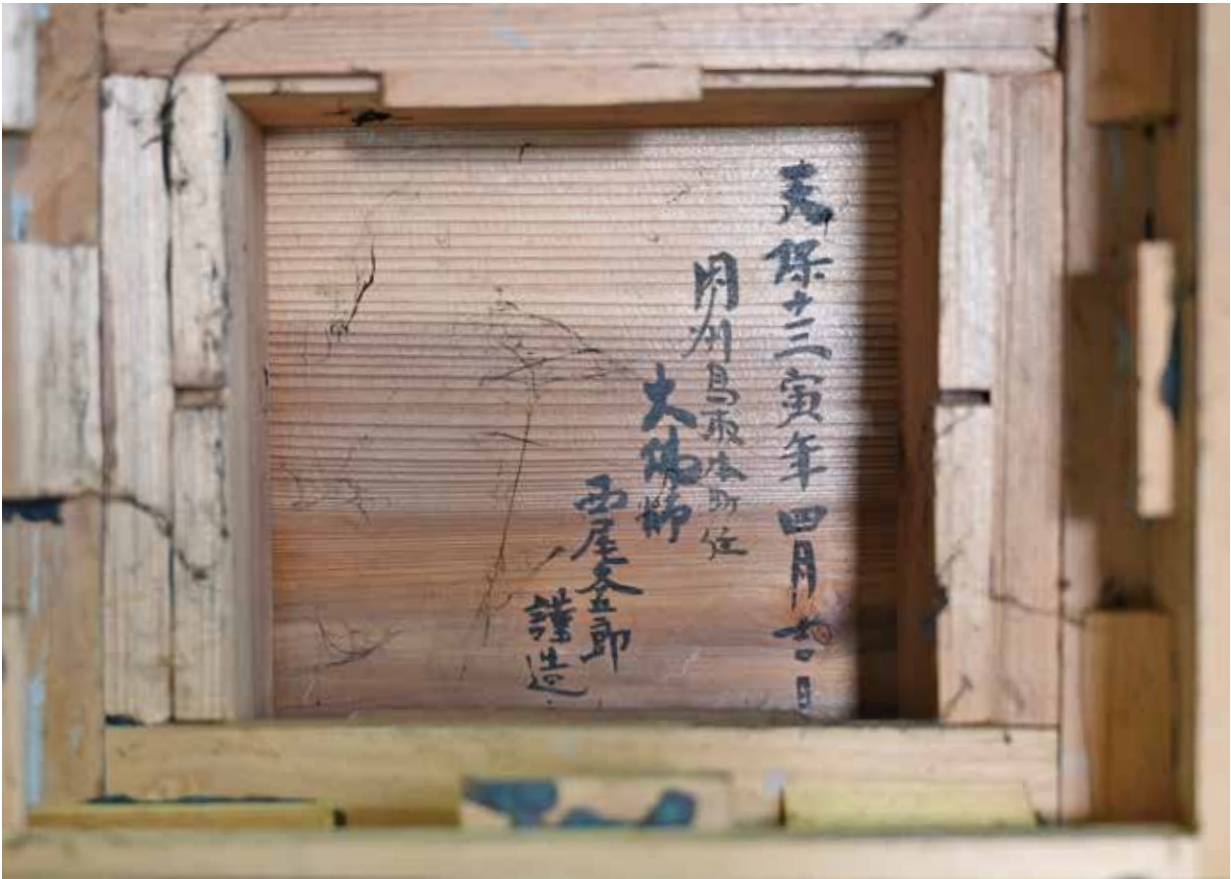 天保十三寅年四月吉日
因州鳥取本町住
大佛師
西尾文五郎
謹造